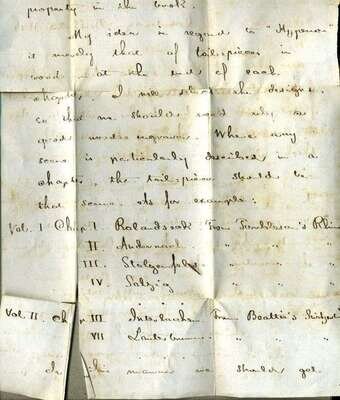 property in the book.
My idea in regard to "Hyperion"
is merely that of tail-pieces in
wood at the ends of each
chapter. I will select the designs,
so that we should need only a
good wooden engraver. Where any
scene is particularly described in a
chapter, the tail-piece should be
that scene. As for example:
Vol. I Chap I. Rolandseck From Tombleson's Rhine
II Andernach " "
III. Stolzenfels " "
IV Salzig " "
Vol. II. Ch p. III. Interlachen From Beattie's Switzerl
VII Lauterbrunnen " "
In this manner we should get